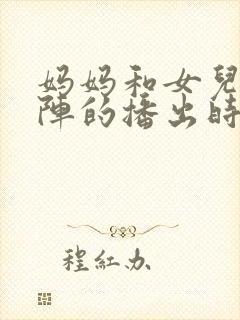 妈妈和女兒
陣的播出時
程紅办